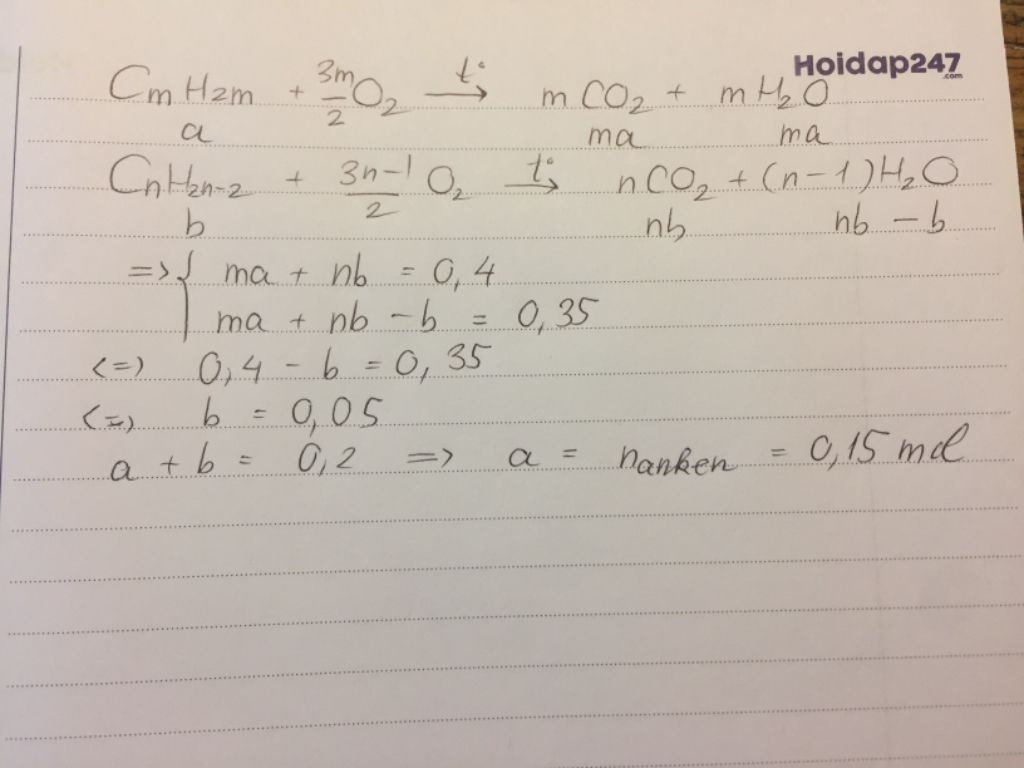 Hoidap247
.com
CmH2m + 3m/2 O2 t° → mCO2 + mH2O
a ma ma
CnH2n-2 + 3n-1/2 O2 t° → nCO2 + (n-1)H2O
b nb nb - b
=> { ma + nb = 0,4
ma + nb - b = 0,35
<=> 0,4 - b = 0,35
<=> b = 0,05
a + b = 0,2 => a = nanken = 0,15 mol